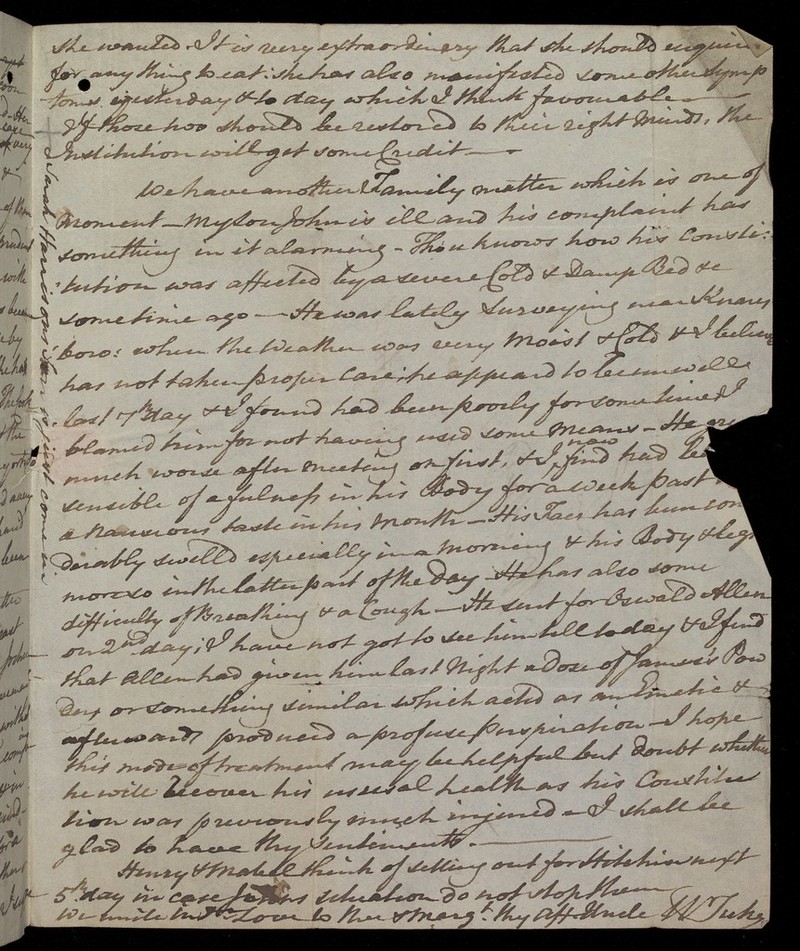 she wanted. It is very extraordinary that she should enquire
for any thing to eat: she has also manifested some other Symp
toms yesterday & to day which I think favourable —
If those two should be restored to their right Minds, the
Institution will get some Credit —
We have another Family matter which is one of
Moment — My Son John is ill and his complaint has
something in it alarming - Thou knows how his Consti:
:tution was affected by a severe Cold & Damp Bed &c
sometime ago — He was lately Surveying near Knares
boro: when the Weather was very Moist & Cold & I believe
has not taken proper Care: he appeard to be unwell
last 7th day & I found had been poorly for some time I
blamed him for not having used some Means - He
much worse after Meeting on first, & I now find had
sensible of a fulness in his Body for a Week past
a Nauseous taste in his Mouth — His Face has been con
derably swelld especially in a Morning & his Body & legs
more so in the latter part of the Day - He has also some
difficulty of Breathing & a Cough — He sent for Oswald Allen
on 2nd day; I have not got to see him till to day & I find
that Allen had given him last Night a Dose of James's Pow
der or something similar which acted as an Emetic &
afterwards produced a profuse Perspiration — I hope
this mode of treatment may be helpful but doubt whether
he will recover his ususal health as his Constitu
tion was previously much injured - I shall be
glad to have thy Sentiments. —
Henry & Mabell think of setting out for Hitchin next
5th day in case Johns situation do not stop them
We unite in Love to thee & Margt. thy Aff Uncle W Tuke
Sarah Harrisons Son is just come in